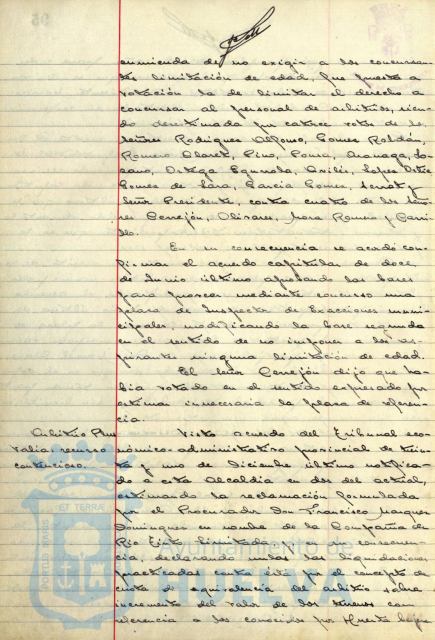 enmienda de no exigir a los concursan-
tes limitación de edad, fue puesta a
votación la de limitar el derecho a
concursar al personal de arbitrios, sien-
do desestimada por catorce votos de los
señores Rodríguez Alfonso, Gomez Roldán,
Romero Claret, Pino, Ponce, Lo-
zano, Ortega Equerola, Avilés, Lopez Ortiz
Gomez de Lara, Garcia Gomez, y
Señor Presidente, contra cuatro de los seño-
res Cerrejón, Olivares, Mora Romero y Carri-
llo.
En su consecuencia se acordó con-
firmar el acuerdo capitular de doce
de Junio último aprobando las bases
para proveer mediante concurso una
plaza de Inspector de Exacciones muni-
cipales, modificando la base segunda
en el sentido de no imponer a los as-
pirantes ninguna limitación de edad.
El señor Cerrejón dijo que ha-
bía votado en el sentido expresado por
estimar innecesaria la plaza de referen-
cia.
Arbitrio Plus
Valia, recurso
contencioso.
Visto acuerdo del Tribunal eco-
nómico-administrativo provincial de trein-
ta y uno de Diciembre último notifica-
do a esta Alcaldía en dos del actual,
estimando la reclamación formulada
por el Procurador Don Francisco Marquez
Dominguez en nombre de la Compañia de
Rio Tinto Limitada y en su consecuen-
cia, declarando nulas las liquidaciones
practicadas contra ésta por el concepto de
cuota de equivalencia del arbitrio sobre
incremento del valor de los terrenos con
referencia a los conocidos por Huerta
PORTUS MARIS
ET TERRAE
Ayuntamiento de
HUELVA